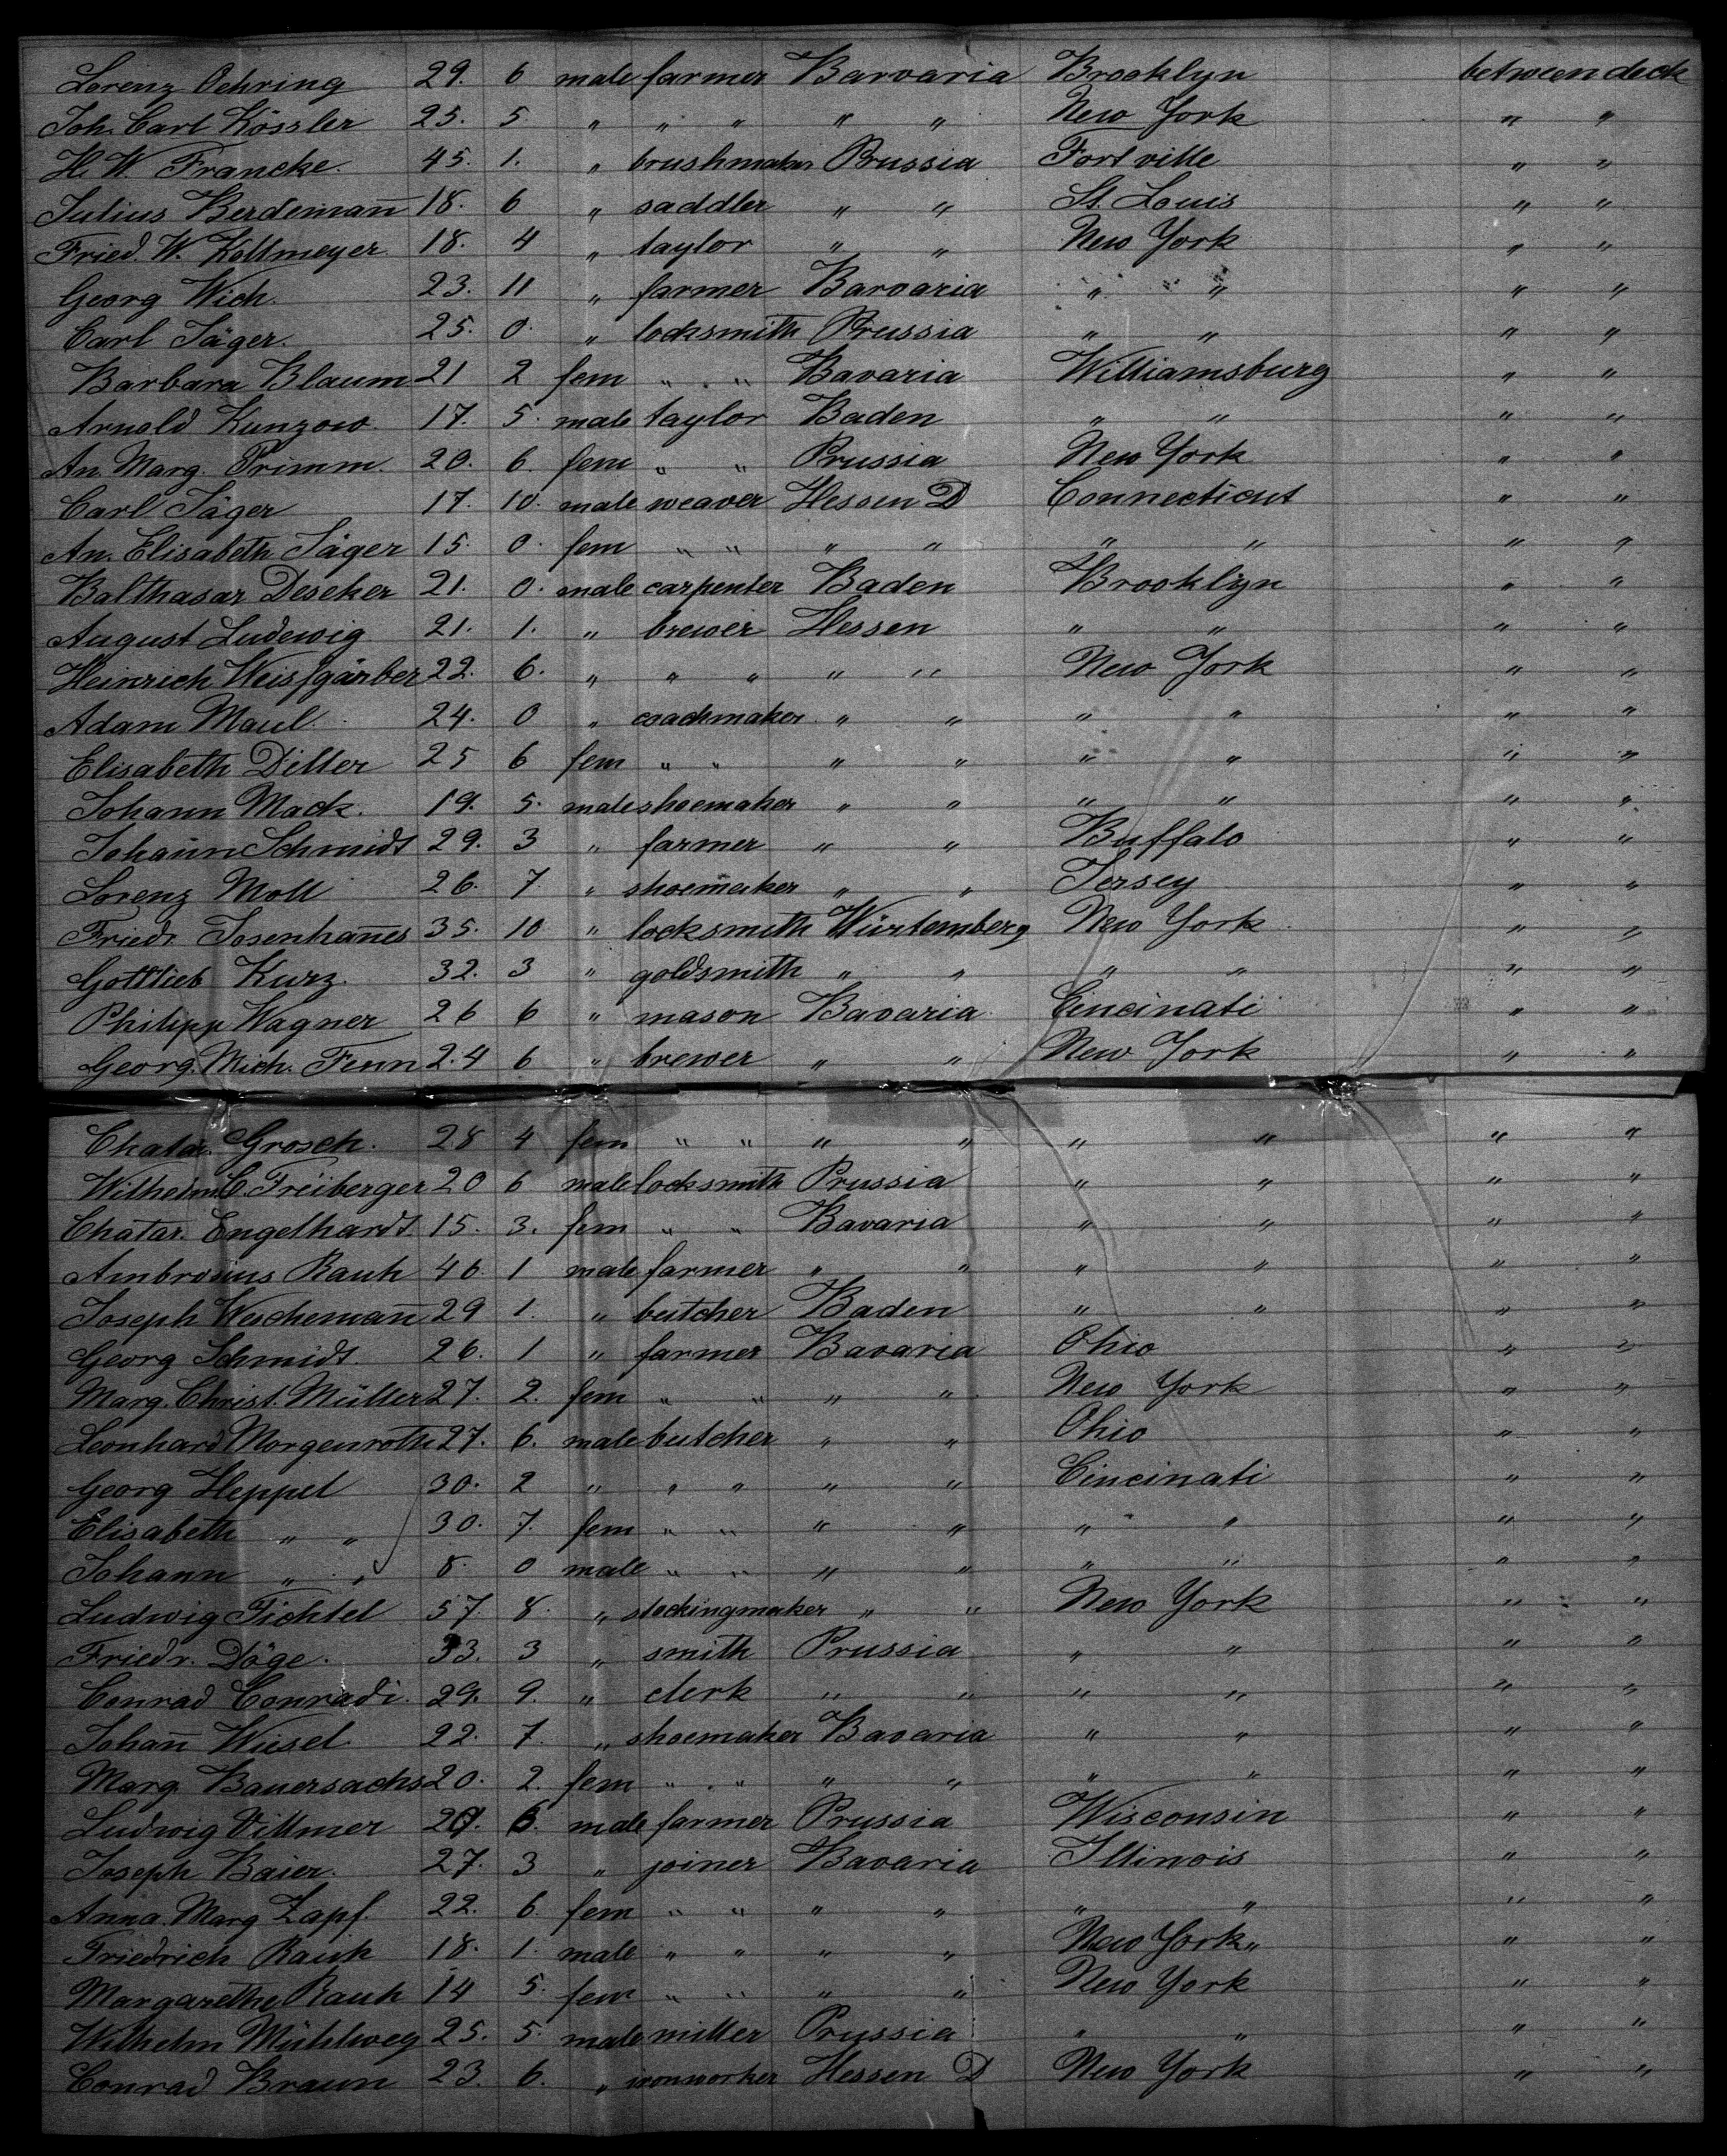 Lorenz Oehring 29. 6 male farmer Barvaria Brooklyn between deck
Joh. Carl Kössler 25. 5 " " " " " New York " "
H. W. Francke. 45. 1. " brushmaker Prussia Fort ville " "
Julius Berdeman̄ 18. 6 " saddler " " St. Louis " "
Fried. W. Kollmeyer 18. 4 " taylor " " New York " "
Georg Wich. 23. 11 " farmer Barvaria " " " "
Carl Jäger. 25. 0. " locksmith Prussia " " " "
Barbara Blaum 21 2 fem " " Bavaria Williamsburg " "
Arnold Kunzow 17. 5. male taylor Baden " " " "
An. Marg. Primm. 20. 6. fem " " Prussia New York " "
Carl Jäger 17. 10. male weaver Hessen D Connecticut " "
An. Elisabeth Jäger 15. 0. fem " " " " " " " "
Balthasar Deseker 21. 0. male carpenter Baden Brooklyn " "
August Ludewig 21. 1. " brewer Hessen " " " "
Heinrich Weisſgärber 22. 6. " " " " " New York " "
Adam Maul. 24. 0 " coachmaker " " " " " "
Elisabeth Diller 25 6 fem " " " " " " " "
Johann Mack. 19. 5. male shoemaker " " " " " "
Johann Schmidt 29. 3 " farmer " " Buffalo " "
Lorenz Moll 26. 7 " shoemaker " " Jersey " "
Friedr. Josenhan̄es 35. 10 " locksmith Würtemberg New York " "
Gottlieb Kurz. 32. 3 " goldsmith " " " " " "
Philipp Wagner 26 6 " mason Bavaria Cincinati " "
Georg. Mich. Fenn 24 6 " brewer " " New York " "
Chatar. Grosch. 28 4 fem " " " " " " " "
Wilhelm C. Freiberger 20 6 male locksmith Prussia " " " "
Chatar. Engelhardt. 15. 3. fem " " Bavaria " " " "
Ambrosius Rauh 46. 1 male farmer " " " " " "
Joseph Wescheman̄ 29 1. " butcher Baden " " " "
Georg Schmidt. 26. 1 " farmer Bavaria Ohio " "
Marg. Christ. Müller 27. 2. fem " " " " New York " "
Leonhard Morgenroth 27. 6. male butcher " " Ohio " "
Georg Heppel 30. 2 " " " " " Cincinati " "
Elisabeth " " 30. 7. fem " " " " " " " "
Johann " " 8. 0 male " " " " " " " "
Ludwig Fichtel 57. 8. " stockingmaker " " New York " "
Friedr. Döge. 33. 3 " smith Prussia " " " "
Conrad Conradi. 29. 9. " clerk " " " " " "
Johan̄ Wiesel. 22. 7. " shoemaker Bavaria " " " "
Marg. Bauersachs 20. 2. fem " " " " " " " "
Ludwig Dittmer male farmer Prussia Wisconsin " "
Joseph Baier. 27. 3 " joiner Bavaria Illinois " "
Anna. Marg Zapf. 22. 6. fem " " " " " " " "
Friedrich Rauh 18. 1. male " " " " New York " " "
Margarethe Rauh 14 5. fem " " " " New York " "
Wilhelm Mühlweg 25. 5. male miller Prussia " " " "
Conrad Braun 23. 6. " ironworker Hessen D New York " "